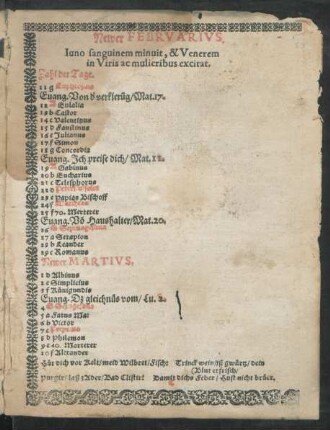 Newer FEBRVARIVS.
Iuno sanguinem minuit, & Venerem
in Viris ac mulieribus excitat.
Zahl der Tage.
11 g
Euang. Von d verklerūg / Mat. 17.
12 Eulalia
13 b Castor
14 c Valentinus
15 d Faustinus
16 e Julianus
17 f Simon
18 g Concordia
Euang. Ich preise dich / Mat. 11.
19 Gabinus
20 b Eucharius
21 c Telesphorus
22 d
23 e Papias Bischoff
24 f
25 f 70. Merterer
Euang. Vō Haushalter / Mat. 20.
26 Septuagesima
27 a Serapion
28 b Leander
29 c Romanus
Newer MARTIVS.
1 d Albinus
2 e Simplicius
3 f Künigundis
Euang. Dz gleichnüs vom / Lu. 2.
4
5 a Fatus Mar
6 b Victor
7 c
8 d Philemon
9 e 40. Merterer
10 f Alexander
Hüt dich vor Kelt / meid Wilbret / Fisch: Trinck wein / iß gwürtz / dein
(Blut erfrisch /
Purgir / laß / Ader / Bad Clistir: Damit dichs Feber / Hust nicht brür.